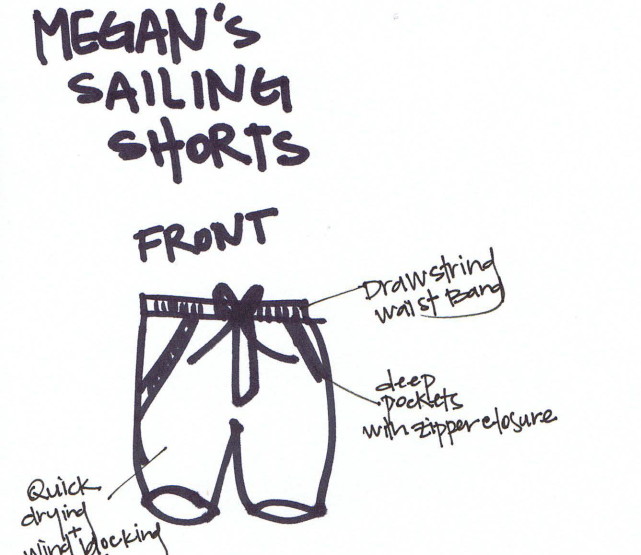 MEGAN's
SAILING
SHORTS
FRONT
Drawstring
waist Band
deep
pockets
with zipper closure
Quick
drying
+
wind blocking